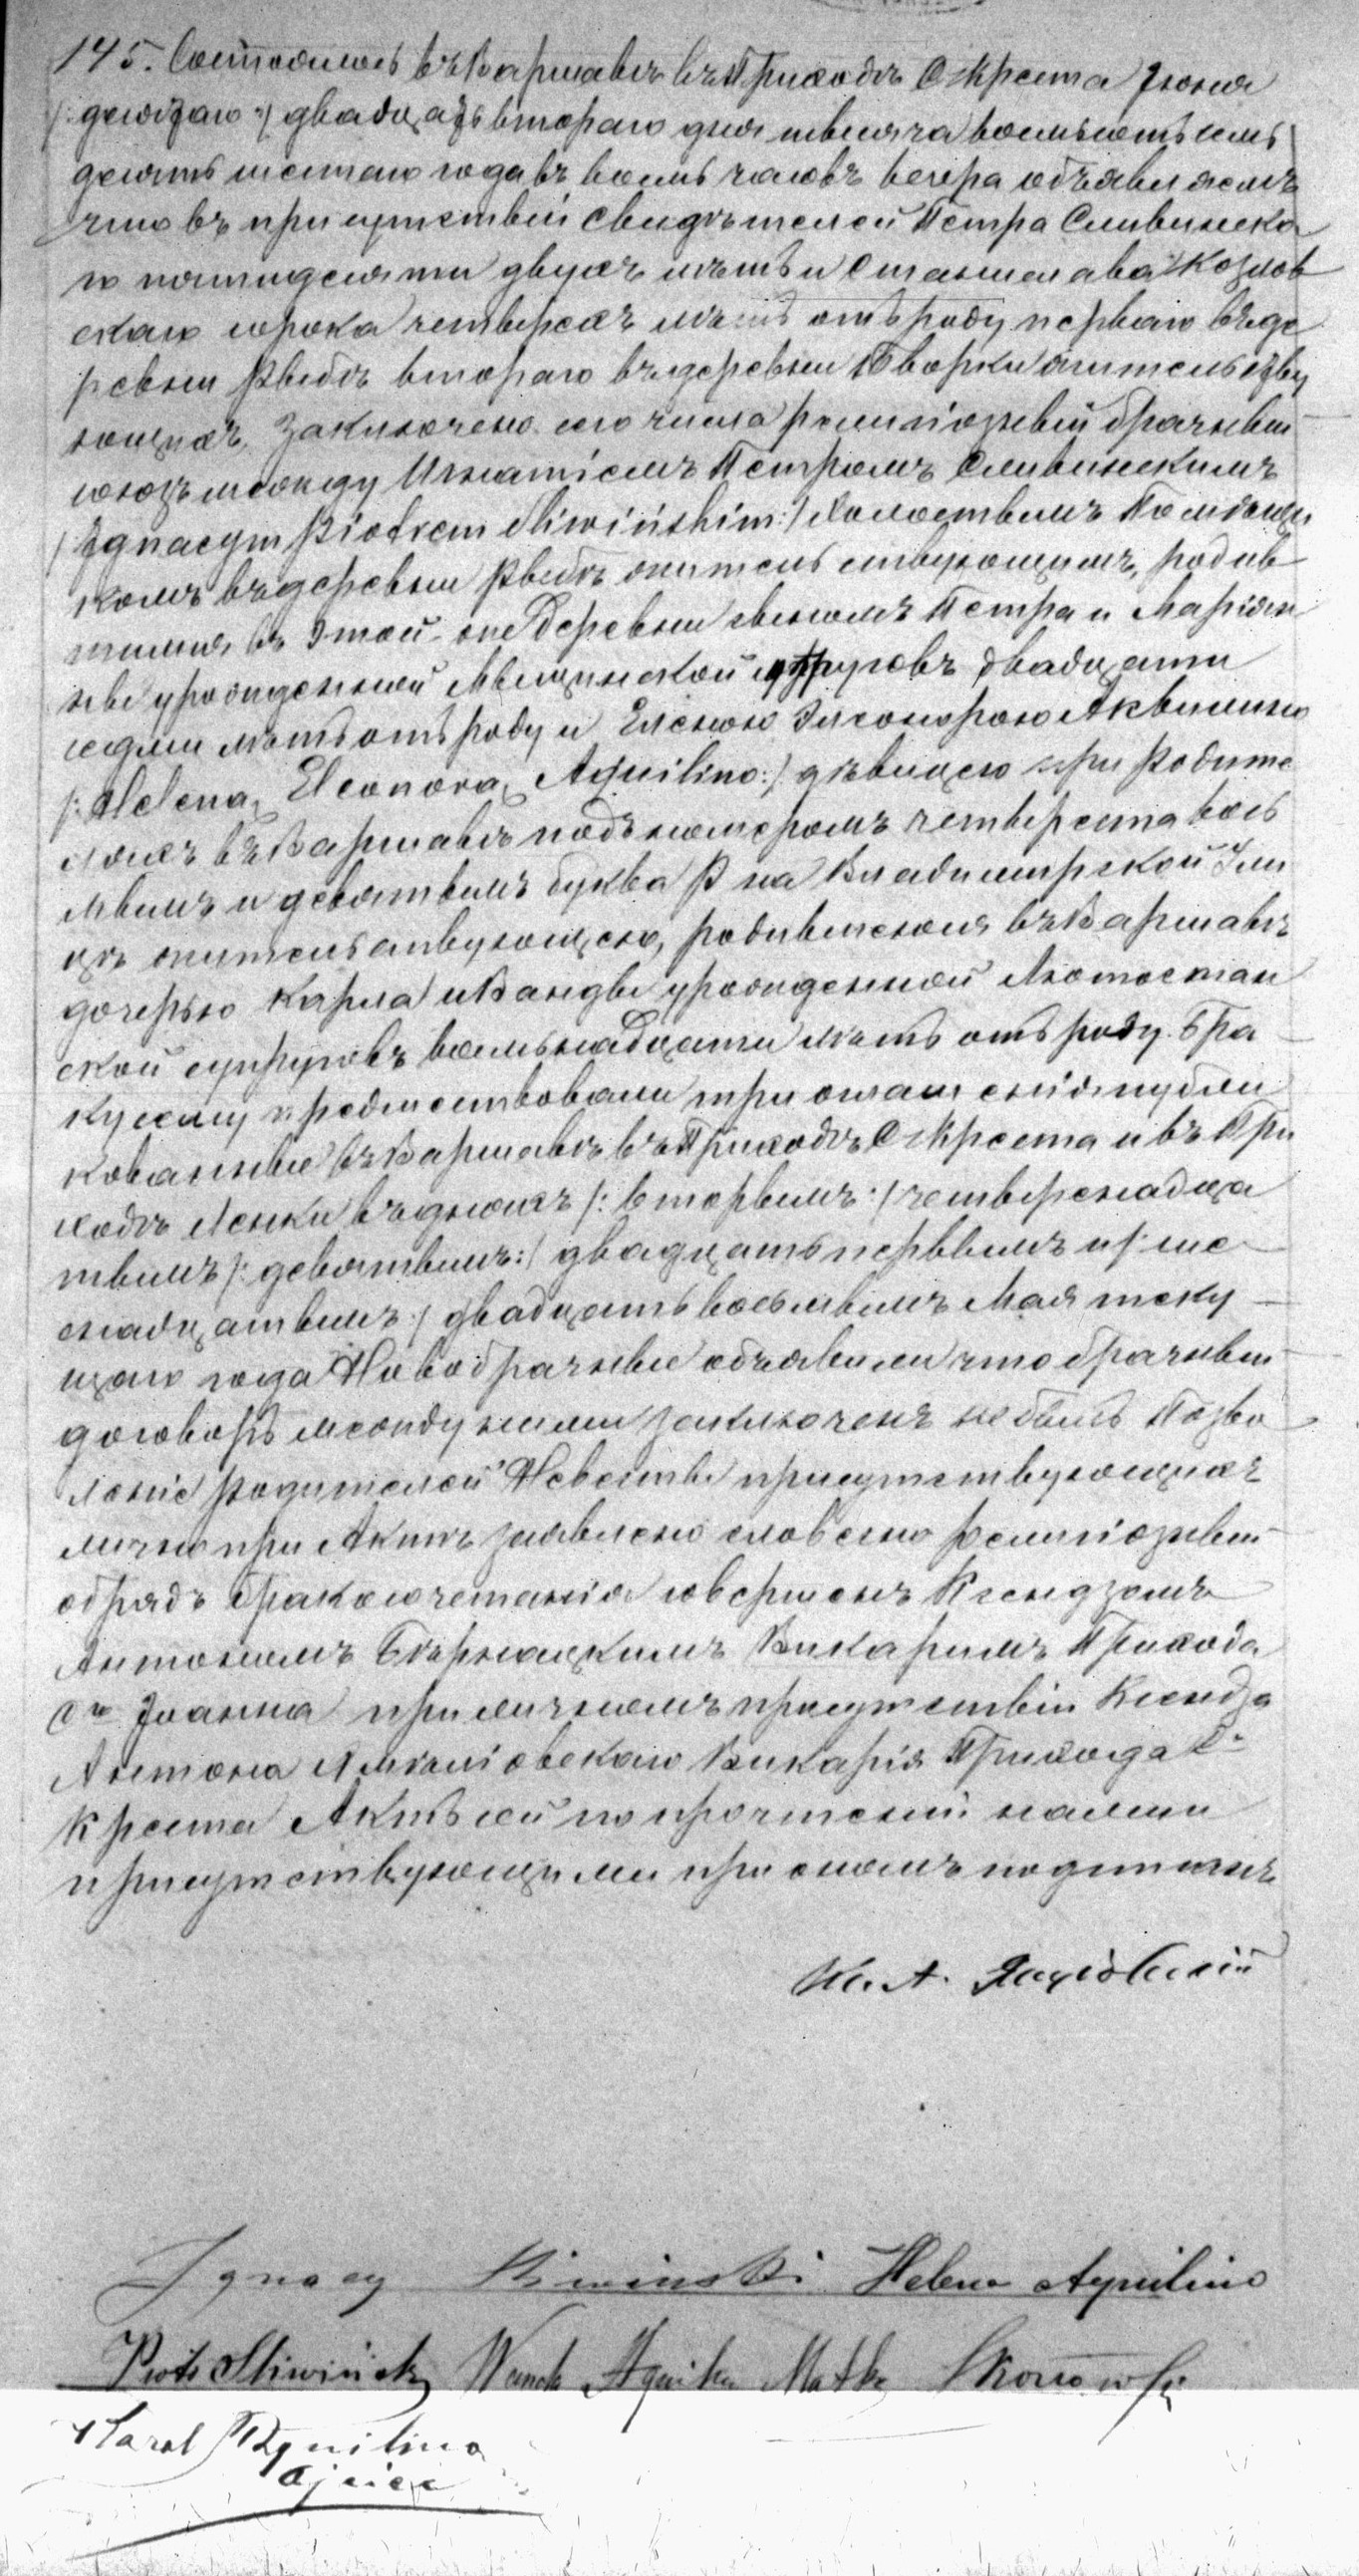 145. Состоялось въ Варшавѣ въ Приходѣ С Креста Іюня
/: десятаго :/ двадцать втораго дня тысяча восемьсотъ семь
десятъ шестаго года въ восемь часовъ вечера объявляемъ
что въ присутствіи свидѣтелей Петра Сливинска
го пятидесяти двухъ лѣтъ и Станислава Козлов
скаго сорока четырехъ лѣтъ отъ роду перваго въ де
ревни втораго въ деревни Творки жительству
ющихъ, заключенъ сего числа религіозный брачный
союзъ между Игнатіемъ Петромъ Сливинскимъ
/: Ignacym Piotrem Śliwińskim :/ холостымъ Помѣщи
комъ въ деревни жительствующимъ, родив
шимся въ этой-же деревни сыномъ Петра и Маріан
ны урожденной супруговъ двадцати
седми лѣтъ отъ роду и Еленою Элеонорою Аквилино
/: Helena, Eleonora, Aquilino :/ дѣвицею при Родите
ляхъ въ Варшавѣ подъ номеромъ четыреста вось
мымъ и девятымъ буква Р на Владимірской Ули
цѣ жительствующею, родившеюся въ Варшавѣ
дочерью Карла и Ванды урожденной Лютостан
ской супруговъ восемьнадцати лѣтъ отъ роду. Бра
ку сему предшествовали три оглашенія публи
кованныя въ Варшавѣ въ Приходѣ С Креста и въ При
ходѣ въ дняхъ /: вторымъ :/ четырнадца
тымъ /: девятымъ :/ двадцать первымъ и /: ше
снадцатымъ :/ двадцать восьмымъ Мая теку
щаго года Новобрачные объявили что брачный
договоръ между ними заключенъ не былъ Позво
леніе родителей Невѣсты присутствующихъ
лично при Актѣ заявлено словесно религіозный
обрядъ бракосочетанія совершенъ Ксендзомъ
Антономъ Бѣрнацкимъ Викаріемъ Прихода
Сго Іоанна при личномъ присутствіи Ксендза
Антона Викарія Прихода С.
Креста Актъ сей по прочтеніи нами
присутствующими при ономъ подписанъ
Кс. А.
Ignacy Śliwiński Helena Aquilino
Piotr Śliwiński Wanda Aquilino Matka
Karol Aquilino
Ojciec